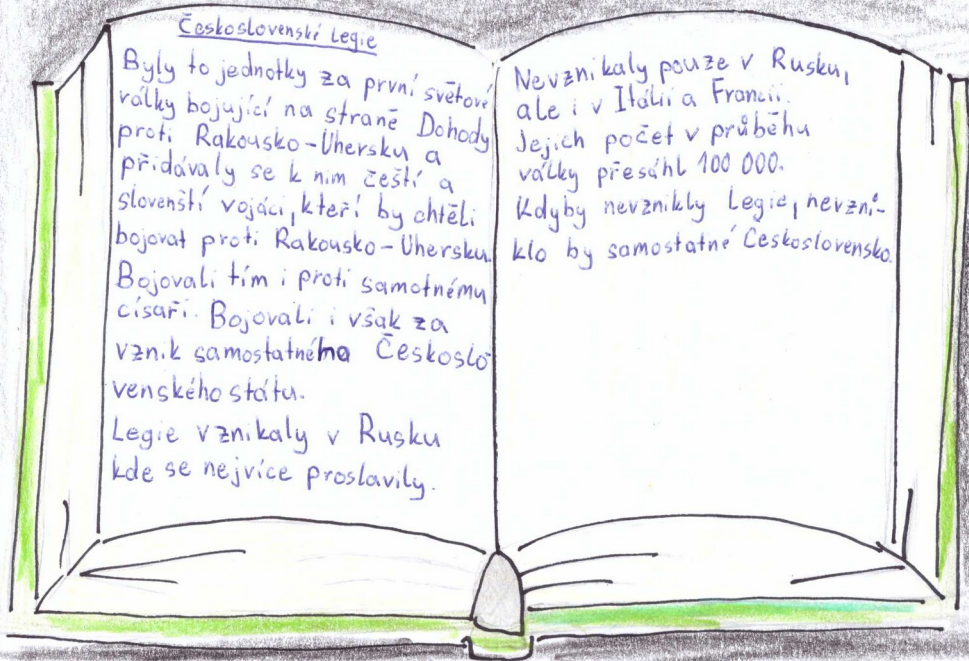 Československé Legie
Byly to jednotky za první světové
války bojující na straně Dohody
proti Rakousko-Uhersku a
přidávaly se k nim čeští a
slovenští vojáci, kteří by chtěli
bojovat proti Rakousko-Uhersku.
Bojovali tím i proti samotnému
císaři. Bojovali i však za
vznik samostatného Českoslo-
venského státu.
Legie vznikaly v Rusku
kde se nejvíce proslavily.
Nevznikaly pouze v Rusku,
ale i v Itálii a Francii.
Jejich počet v průběhu
války přesáhl 100 000.
Kdyby nevznikly Legie, nevzni-
klo by samostatné Československo.